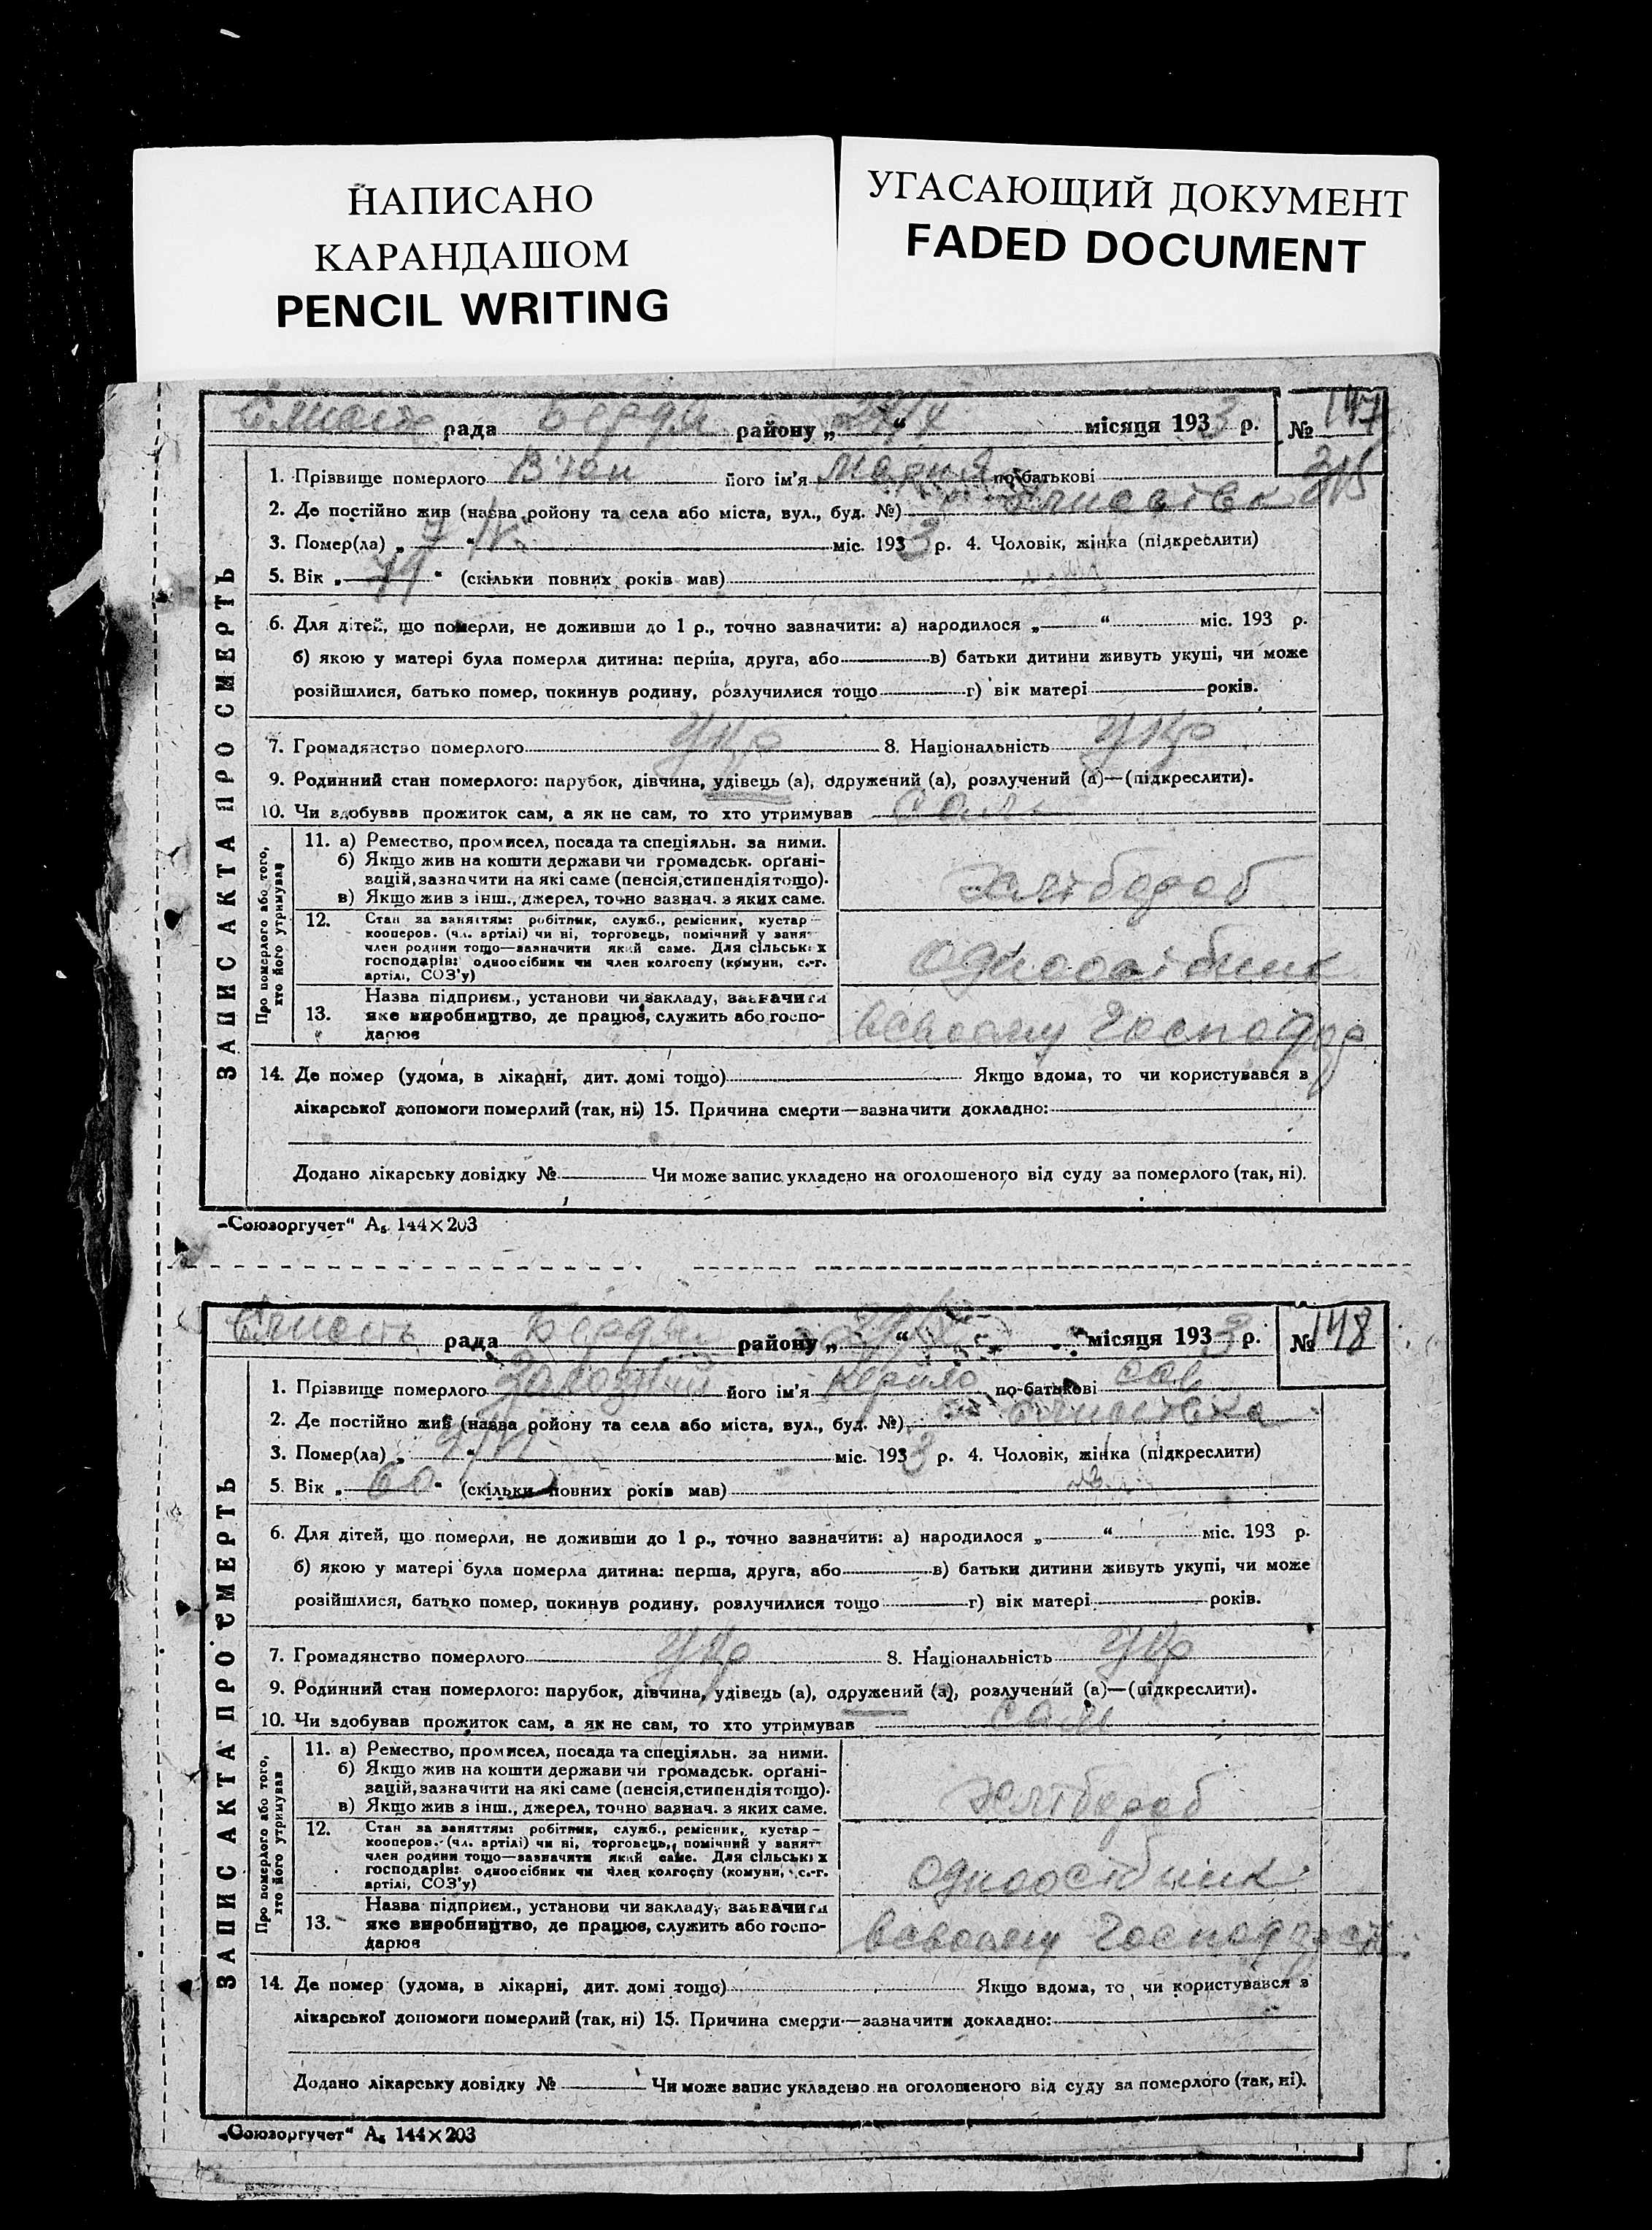 НАПИСАНО
КАРАНДАШОМ
PENCIL WRITING
УГАСАЮЩИЙ ДОКУМЕНТ
FADED DOCUMENT
рада Бердян району „ “ місяця 1933 р. № 147
1. Прізвище померлого В'юн його ім'я Мария по-батькові
2. Де постійно жив (назва району та села або міста, вул., буд. №)
3. Помер(ла) „ 7 “ IV міс. 1933 р. 4. Чоловік, жінка (підкреслити)
5. Вік „ “ (скільки повних років мав)
6. Для дітей, що померли, не доживши до 1 р., точно зазначити: а) народилося „ “ міс. 193 р.
б) якою у матері була померла дитина: перша, друга, або в) батьки дитини живуть укупі, чи може
розійшлися, батько помер, покинув родину, розлучилися тощо г) вік матері років.
7. Громадянство померлого Укр 8. Національність Укр
9. Родинний стан померлого: парубок, дівчина, удівець (а), одружений (а), розлучений (а)—(підкреслити).
10. Чи здобував прожиток сам, а як не сам, то хто утримував сам
ЗАПИС АКТА ПРО СМЕРТЬ
Про померлого або того,
хто його утримував
11. а) Ремество, промисел, посада та спеціяльн. за ними.
б) Якщо жив на кошти держави чи громадськ. орґані-
зацій, зазначити на які саме (пенсія, стипендія тощо).
в) Якщо жив з інш., джерел, точно зазнач. з яких саме.
хлібороб
12. Стан за заняттям: робітник, служб., ремісник, кустар—
кооперов. (чл. артілі) чи ні, торговець, помічний у занят-
член родини тощо—зазначити який саме. Для сільських
господарів: одноосібник чи член колгоспу (комуни, с.-г.
артілі, СОЗ'у)
одноосібник
13. Назва підприєм., установи чи закладу, зазначити
яке виробництво, де працює, служить або госпо-
дарює
всвоему господар
14. Де помер (удома, в лікарні, дит. домі тощо) Якщо вдома, то чи користувався з
лікарської допомоги померлий (так, ні) 15. Причина смерти—зазначити докладно:
Додано лікарську довідку № Чи може запис укладено на оголошеного від суду за померлого (так, ні).
„Союзоргучет“ А₅ 144×203
рада Бердян району „ “ місяця 1933 р. № 148
1. Прізвище померлого його ім'я Кирило по-батькові Сав
2. Де постійно жив (назва району та села або міста, вул., буд. №)
3. Помер(ла) „ “ міс. 1933 р. 4. Чоловік, жінка (підкреслити)
5. Вік „ 60 “ (скільки повних років мав)
6. Для дітей, що померли, не доживши до 1 р., точно зазначити: а) народилося „ “ міс. 193 р.
б) якою у матері була померла дитина: перша, друга, або в) батьки дитини живуть укупі, чи може
розійшлися, батько помер, покинув родину, розлучилися тощо г) вік матері років.
7. Громадянство померлого Укр 8. Національність Укр
9. Родинний стан померлого: парубок, дівчина, удівець (а), одружений (а), розлучений (а)—(підкреслити).
10. Чи здобував прожиток сам, а як не сам, то хто утримував сам
ЗАПИС АКТА ПРО СМЕРТЬ
Про померлого або того,
хто його утримував
11. а) Ремество, промисел, посада та спеціяльн. за ними.
б) Якщо жив на кошти держави чи громадськ. орґані-
зацій, зазначити на які саме (пенсія, стипендія тощо).
в) Якщо жив з інш., джерел, точно зазнач. з яких саме.
хлібороб
12. Стан за заняттям: робітник, служб., ремісник, кустар—
кооперов. (чл. артілі) чи ні, торговець, помічний у занят-
член родини тощо—зазначити який саме. Для сільських
господарів: одноосібник чи член колгоспу (комуни, с.-г.
артілі, СОЗ'у)
одноосібник
13. Назва підприєм., установи чи закладу, зазначити
яке виробництво, де працює, служить або госпо-
дарює
всвоему господарст
14. Де помер (удома, в лікарні, дит. домі тощо) Якщо вдома, то чи користувався з
лікарської допомоги померлий (так, ні) 15. Причина смерти—зазначити докладно:
Додано лікарську довідку № Чи може запис укладено на оголошеного від суду за померлого (так, ні).
„Союзоргучет“ А₅ 144×203